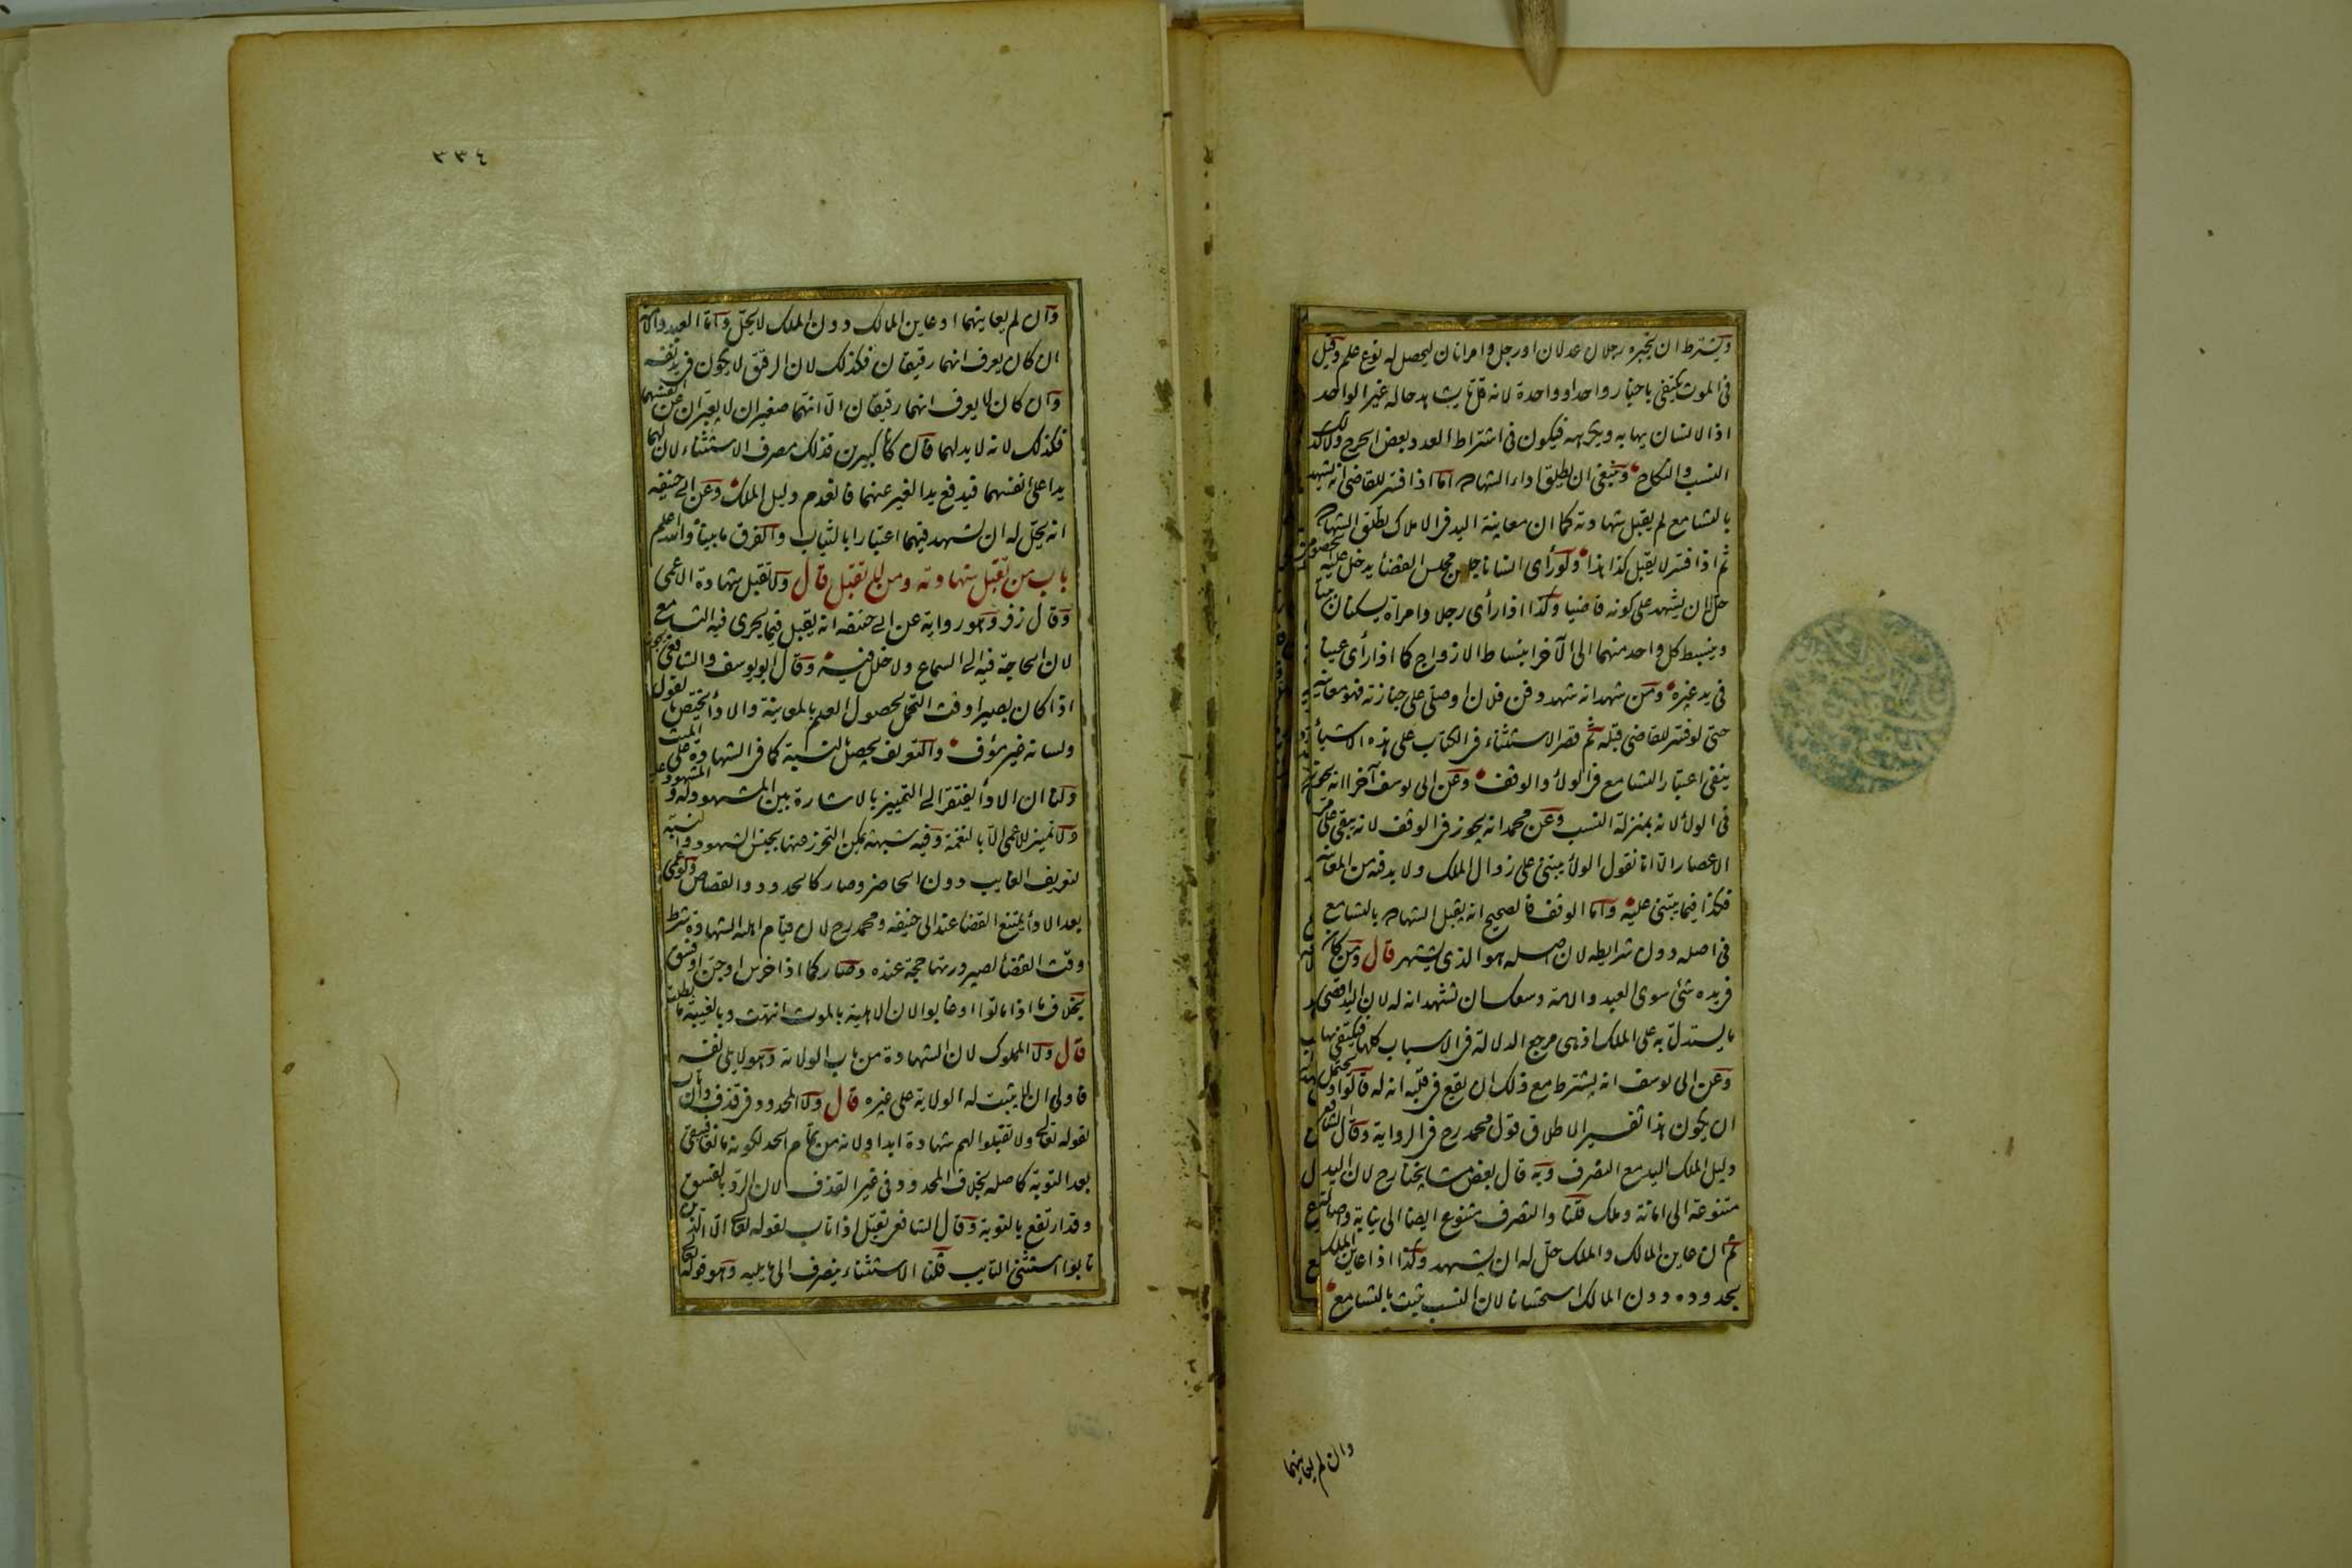 ويشترط ان يخبره رجلان عدلان او رجل وامراتان ليحصل له نوع علم وقيل
فى الموت يكتفى باخبار واحد او واحدة لانه قل ما يشاهد حاله غير الواحد
اذ الانسان يهابه ويكرهه فيكون فى اشتراط العدد بعض الحرج ولا كذلك
النسب والنكاح وينبغى ان يطلق اداء الشهادة اما اذا فسر للقاضى انه يشهد
بالتسامع لم يقبل شهادته كما ان معاينة اليد فى الاملاك يطلق الشهادة
ثم اذا فسر لا يقبل كذا هذا ولو رأى انسانا جلس مجلس القضاء يدخل عليه الخصوم
حل له ان يشهد على كونه قاضيا وكذا اذا رأى رجلا وامراة يسكنان بيتا
وينبسط كل واحد منهما الى الآخر انبساط الازواج كما اذا رأى عينا
فى يد غيره ومن شهد انه شهد دفن فلان او صلى على جنازته فهو معاينة
حتى لو فسر للقاضى قبله ثم قصر الاستثناء فى الكتاب على هذه الاشياء
ينفى اعتبار التسامع فى الولاء والوقف وعن ابى يوسف آخرا انه يجوز
فى الولاء لانه بمنزلة النسب وعن محمد انه يجوز فى الوقف لانه يبقى على مر
الاعصار الا انا نقول الولاء يبتنى على زوال الملك ولا بد فيه من المعاينة
فكذا فيما يبتنى عليه واما الوقف فالصحيح انه يقبل الشهادة بالتسامع
فى اصله دون شرايطه لان اصله هو الذى يشتهر قال ومن كان
فى يده شئ سوى العبد والامة وسعك ان تشهد انه له لان اليد اقصى
ما يستدل به على الملك اذ هى مرجع الدلالة فى الاسباب كلها فيكتفى بها
وعن ابى يوسف انه يشترط مع ذلك ان يقع فى قلبه انه له قالوا ويحتمل
ان يكون هذا تفسير الاطلاق قول محمد رح فى الرواية وقال الشافعى
دليل الملك اليد مع التصرف وبه قال بعض مشايخنا رح لان اليد
متنوعة الى امانة وملك قلنا والتصرف متنوع ايضا الى نيابة واصالة
ثم ان عاين المالك والملك حل له ان يشهد وكذا اذا عاين الملك
بحدوده دون المالك استحسانا لان النسب يثبت بالتسامع
وان لم يعاينهما
٣٣٤
وان لم يعاينهما او عاين المالك دون الملك لا يحل واما العبد والامة
ان كان يعرف انهما رقيقان فكذلك لان الرقيق لا يكون فى يد نفسه
وان كان لا يعرف انهما رقيقان الا انهما صغيران لا يعبران عن انفسهما
فكذلك لانه لا يد لهما وان كانا كبيرين فذلك مصرف الاستثناء لان لهما
يدا على انفسهما فيدفع يد الغير عنهما فانعدم دليل الملك وعن ابى حنيفه
انه يحل له ان يشهد فيهما اعتبارا بالثياب والفرق ما بيناه والله اعلم
باب من تقبل شهادته ومن لا تقبل قال ولا تقبل شهادة الاعمى
وقال زفر وهو رواية عن ابى حنيفه انه يقبل فيما يجرى فيه التسامع
لان الحاجة فيه الى السماع ولا خلل فيه وقال ابو يوسف والشافعى يجوز
اذا كان بصيرا وقت التحمل لحصول العلم بالمعاينة والاداء يختص بالقول
ولسانه غير مؤف والتعريف يحصل بالنسبة كما فى الشهادة على الميت
ولنا ان الاداء يفتقر الى التمييز بالاشارة بين المشهود له والمشهود عليه
ولا تميز للاعمى الا بالنغمة وفيه شبهة يمكن التحرز عنها بجنس الشهود والنسبة
لتعريف الغايب دون الحاضر وصار كالحدود والقصاص ولو عمى
بعد الاداء يمتنع القضاء عند ابى حنيفه ومحمد رح لان قيام اهلية الشهادة شرط
وقت القضاء لصيرورتها حجة عنده وصار كما اذا خرس او جن او فسق
بخلاف ما اذا ماتوا او غابوا لان الاهلية بالموت انتهت وبالغيبة ما بطلت
قال ولا المملوك لان الشهادة من باب الولاية وهو لا يلى نفسه
فاولى ان لا يثبت له الولاية على غيره قال ولا المحدود فى قذف وان تاب
لقوله تعالى ولا تقبلوا لهم شهادة ابدا ولانه من تمام الحد لكونه مانعا فيبقى
بعد التوبة كاصله بخلاف المحدود فى غير القذف لان الرد بالفسق
وقد ارتفع بالتوبة وقال الشافعى تقبل اذا تاب لقوله تعالى الا الذين
تابوا استثنى التايب قلنا الاستثناء ينصرف الى ما يليه وهو قوله تعالى